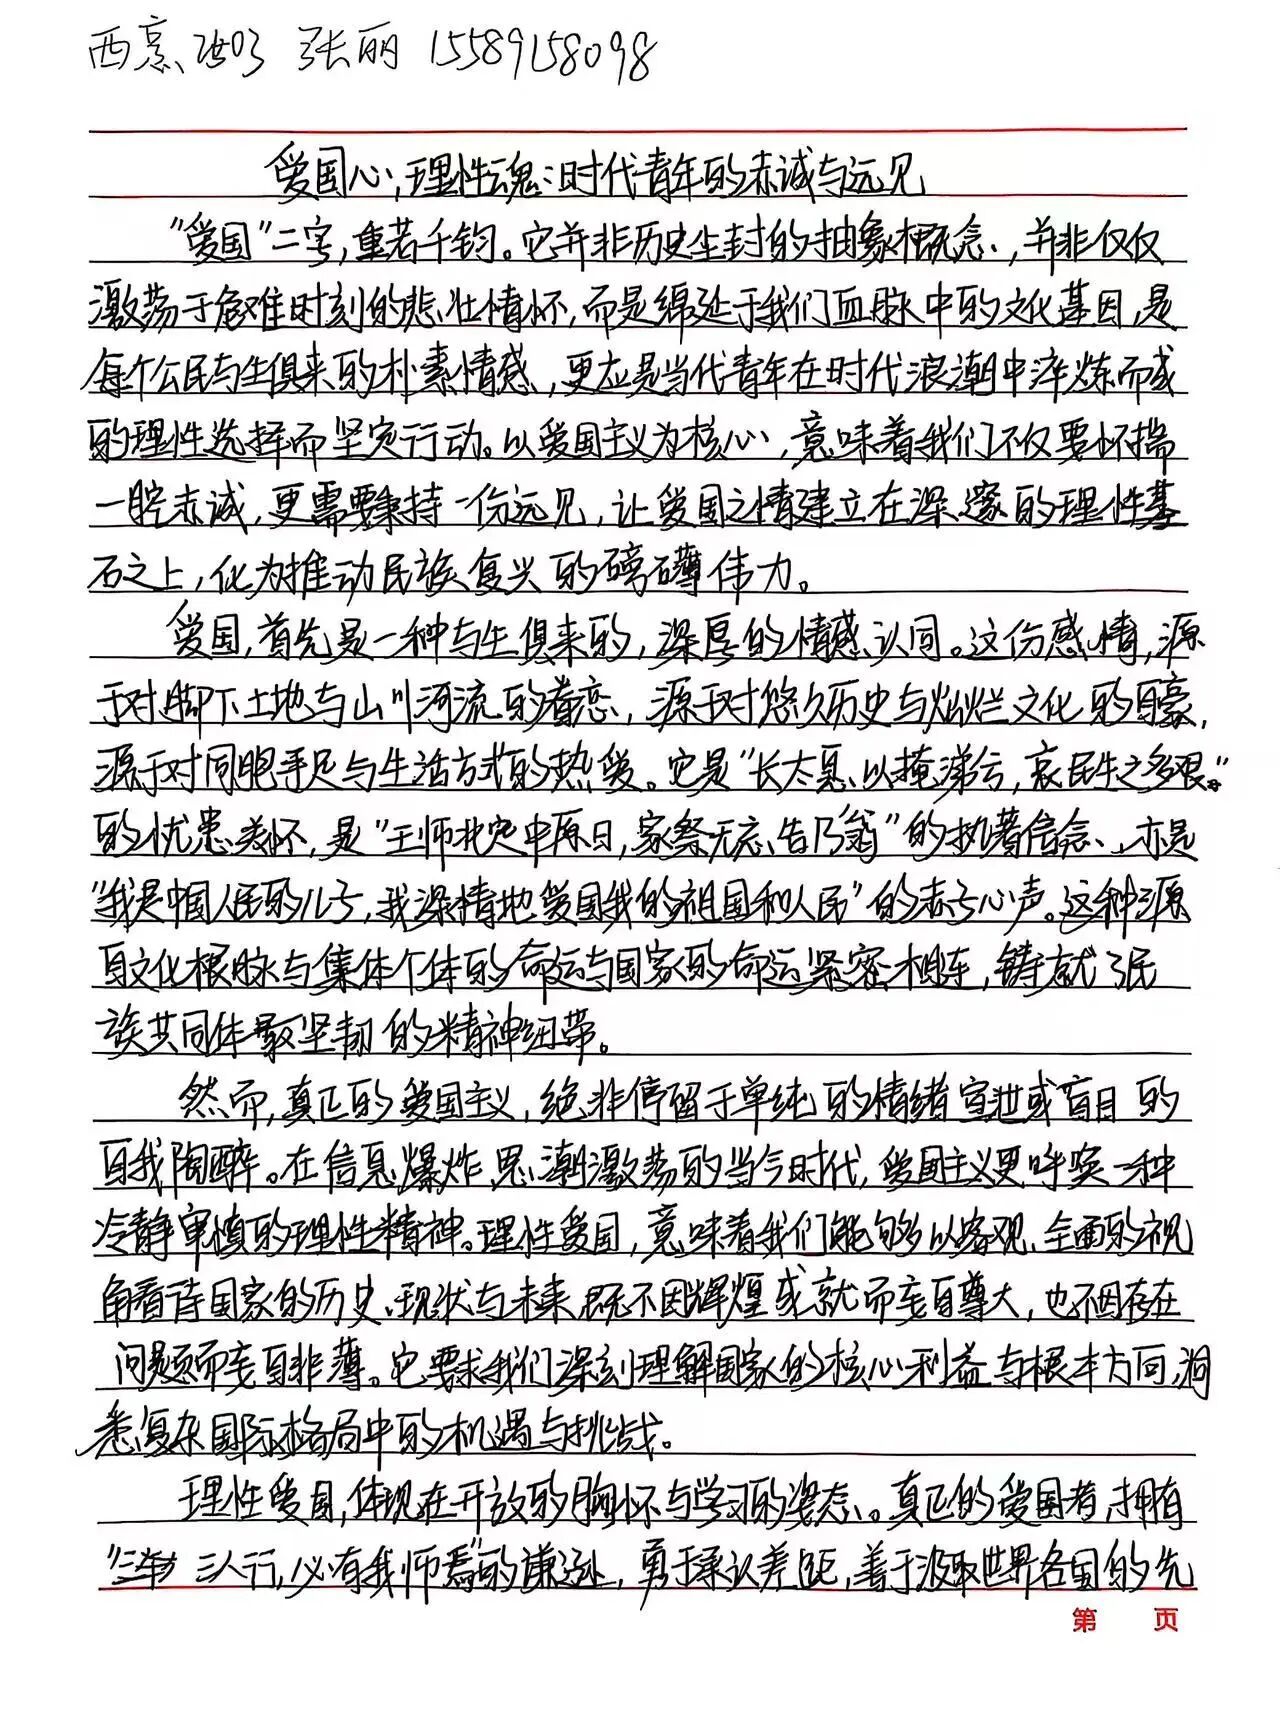 西京 张丽 15589158098
爱国心,理性魂:时代青年的赤诚与远见
“爱国”二字,重若千钧。它并非历史尘封的抽象概念,并非仅仅
激荡于危难时刻的悲壮情怀,而是绵延于我们血脉中的文化基因,是
每个公民与生俱来的朴素情感,更应是当代青年在时代浪潮中淬炼而成
的理性选择而坚实行动。以爱国主义为核心,意味着我们不仅要怀揣
一腔赤诚,更需要秉持一份远见,让爱国之情建立在深邃的理性基
石之上,化为推动民族复兴的磅礴伟力。
爱国,首先是一种与生俱来的,深厚的情感认同。这份感情,源
于对脚下土地与山川河流的眷恋,源于对悠久历史与灿烂文化的自豪,
源于对同胞手足与生活方式的热爱。它是“长太息以掩涕兮,哀民生之多艰。”
的忧患关怀,是“王师北定中原日,家祭无忘告乃翁”的执着信念,亦是
“我是中国人民的儿子,我深情地爱国我的祖国和人民”的赤子心声。这种源
自文化根脉与集体个体的命运与国家的命运紧密相连,铸就了民
族共同体最坚韧的精神纽带。
然而,真正的爱国主义,绝非停留于单纯的情绪宣泄或盲目的
自我陶醉。在信息爆炸,思潮激荡的当今时代,爱国主义更呼唤一种
冷静审慎的理性精神。理性爱国,意味着我们能够以客观、全面的视
角看待国家的历史、现状与未来,既不因辉煌成就而妄自尊大,也不因存在
问题而妄自菲薄。它要求我们深刻理解国家的核心利益与根本方向,洞
悉复杂国际格局中的机遇与挑战。
理性爱国,体现在开放的胸怀与学习的姿态。真正的爱国者,拥有
“三人行,必有我师焉”的谦逊,勇于承认差距,善于汲取世界各国的先
第 页